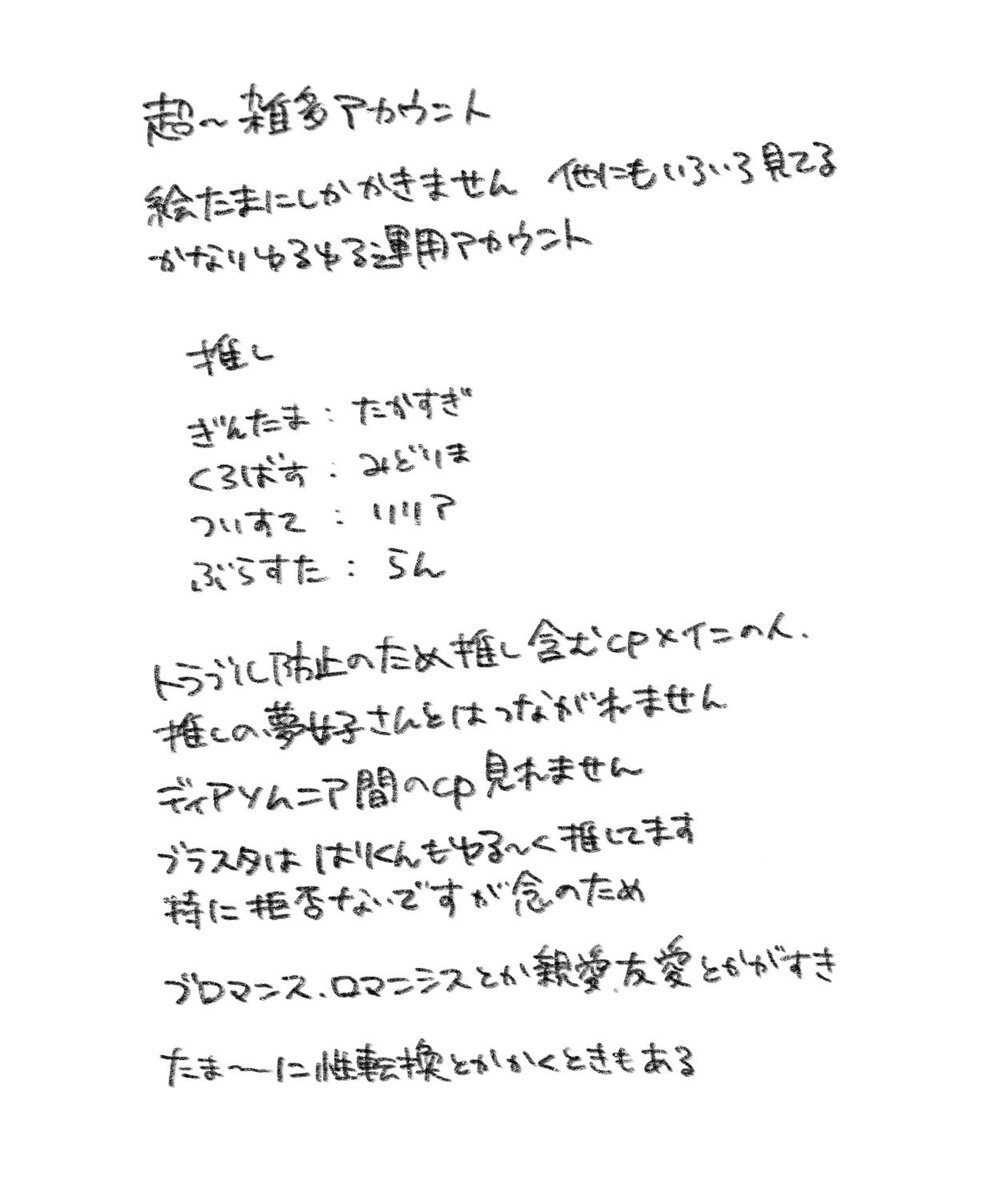 超〜雑多アカウント
絵たまにしかかきません 他にもいろいろ見てる
かなりゆるゆる運用アカウント
推し
ぎんたま：たかすぎ
くろばす：みどりま
ついすて：リリア
ぶらすた：らん
トラブル防止のため推し含むcpメインの人、
推しの夢女子さんとはつながれません
ディアソムニア間のcp見れません
ブラスタははりくんもゆる〜く推してます
特に拒否ないですが念のため
ブロマンス、ロマンシスとか親愛、友愛とかがすき
たま〜に性転換とかかくときもある